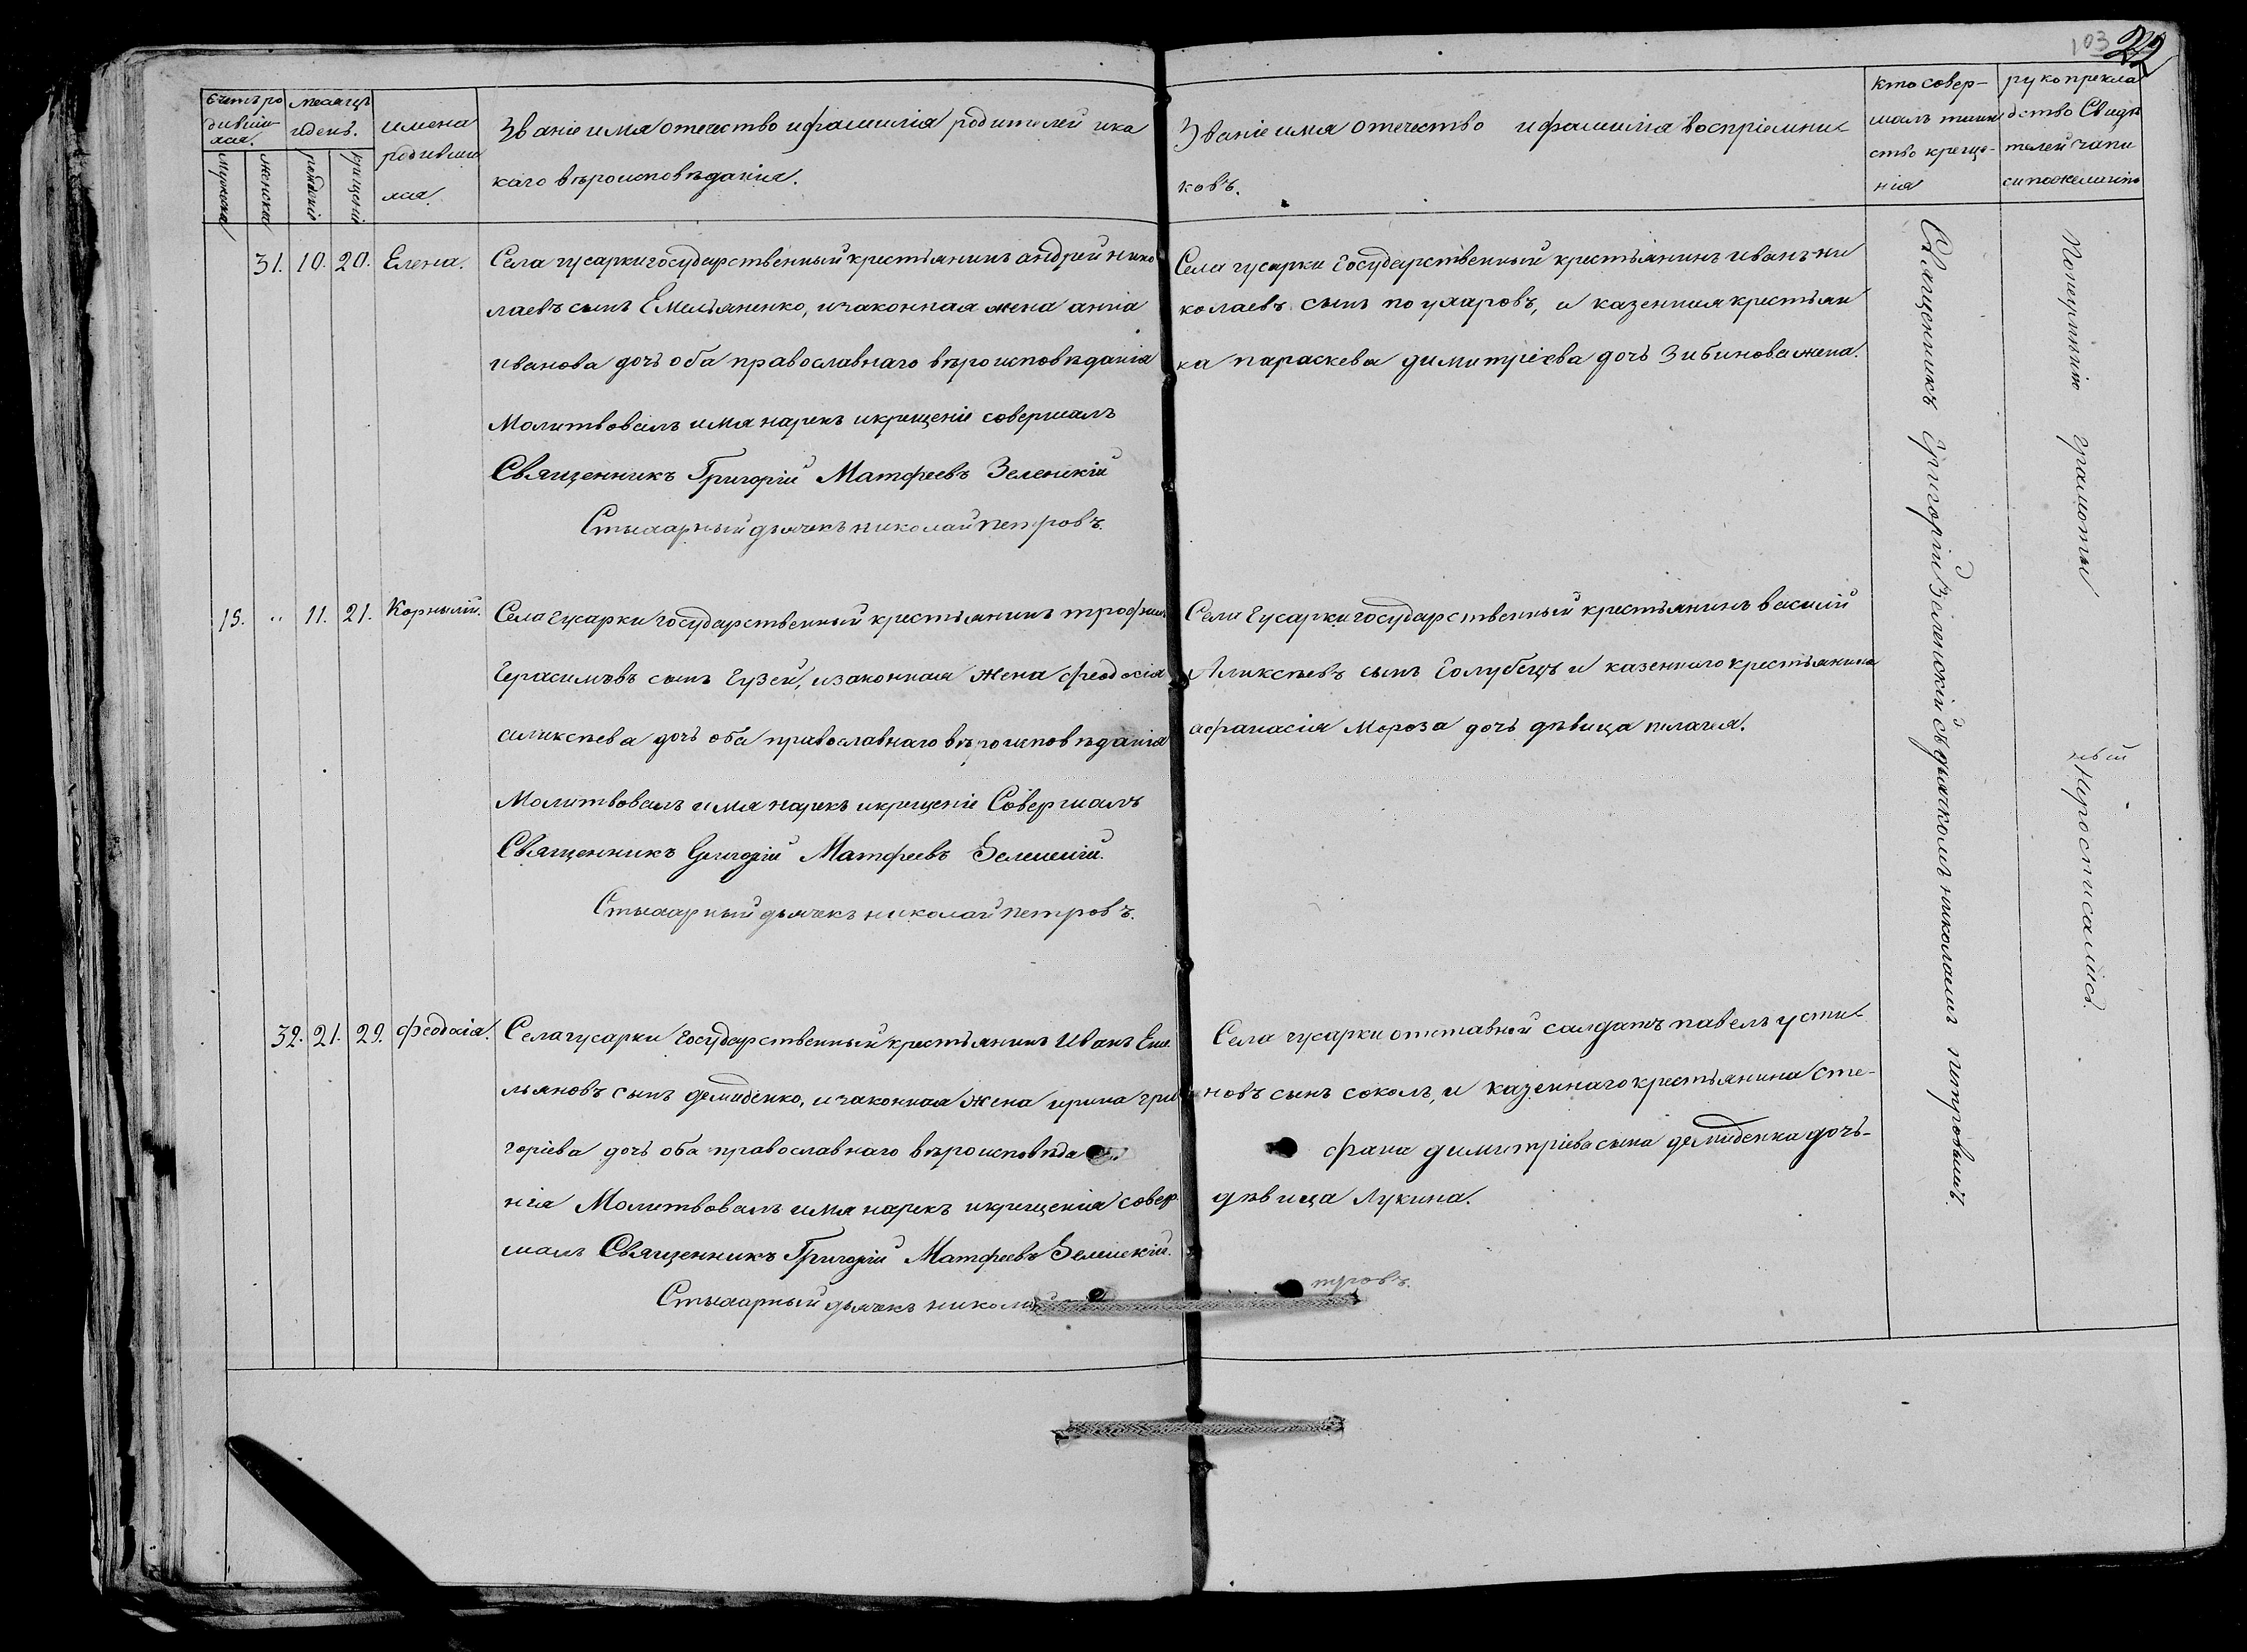 103 22
Счетъ ро
дивши
хся.
месяцъ
и день.
имена
родивши
хся.
Званіе имя отечество и фамилія родителей и ка
каго вѣроисповѣданія.
Званіе имя отечество и фамилія воспріемни
ковъ.
кто совер-
шалъ таин
ство креще-
нія
рукоприкла
дство Свидѣ
телей запи
си по желанію
мужска
женска
рожденіе
крещеніе
31. 10. 20. Елена.
Села гусарки государственный крестьянинъ андрей нико
лаевъ сынъ Емельяненко, и законная жена анна
иванова дочь оба православнаго вѣроисповѣданія
Молитвовалъ имя нарекъ и крещеніе совершалъ
Священникъ Григорій Матфеевъ Зеленскій
Стихарный дьячекъ николай петровъ.
Села гусарки Государственный крестьянинъ иванъ ни
колаевъ сынъ, и казенная крестьян
ка параскева димитріева дочь Зибинова жена.
15. " 11. 21. Корнилій.
Села Гусарки государственный крестьянинъ трофимъ
Герасимовъ сынъ Гузей, и законная жена феодосія
аликсѣева дочь оба православнаго вѣроисповѣданія
Молитвовалъ имя нарекъ и крещеніе Совершалъ
Священникъ Григорій Матфеевъ Зеленскій.
Стихарный дьячекъ николай петровъ.
Села Гусарки государственный крестьянинъ василій
Аликсѣевъ сынъ Голубецъ и казеннаго крестьянина
афанасія Мороза дочь дѣвица пилагея.
32. 21. 29. феодосія.
Села гусарки Государственный крестьянинъ Иванъ Еме
льяновъ сынъ демиденко, и законная жена ирина гри
горіева дочь оба православнаго вѣроисповѣда
нія Молитвовалъ имя нарекъ и крещенія совер
шалъ Священникъ Григорій Матфеевъ Зеленскій.
Стихарный дьячекъ никола
тровъ.
Села гусарки отставной салдатъ павелъ усти
новъ сынъ соколъ, и казеннаго крестьянина Сте-
фана димитріева сына демиденка дочь-
дѣвица Лукина.
Священникъ Григорій Зеленскій съ дьячкомъ николаемъ петровымъ.
По неумѣнію грамоты
ный
не росписались.